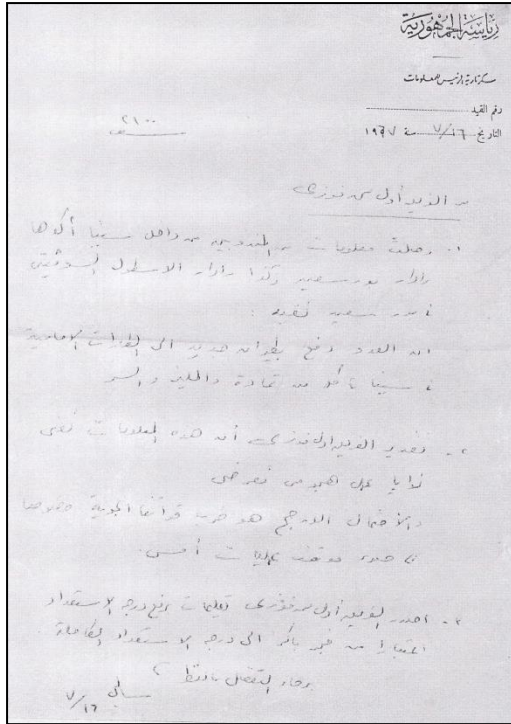 رياسة الجمهورية
سكرتارية الرئيس للمعلومات
رقم القيد
التاريخ ١٦/٧ سنة ١٩٦٧
٢١٠٠
من الفريق أول محمد فوزى
١- وصلت معلومات من المندوبين من داخل سيناء أكدها
رادار بورسعيد وكذا رادار الاسطول السوفيتى
فى بور سعيد تفيد :
ان العدو دفع بطيران جديد الى المطارات الامامية
فى سيناء تأكد من تمادة والمليز والسر
٢- تقدير الفريق اول فوزى أن هذه المعلومات تعنى
نوايا عمل هجومى تعرضى
والاحتمال الارجح هو ضرب قواتنا الجوية خصوصا
فى ضوء موقف عمليات أمس.
٣- اصدر الفريق أول محمد فوزى تعليمات برفع درجة الاستعداد
اعتبارا من فجر باكر الى درجة الاستعداد الكاملة.
برجاء التفضل بالنظر
سامى
١٦/٧